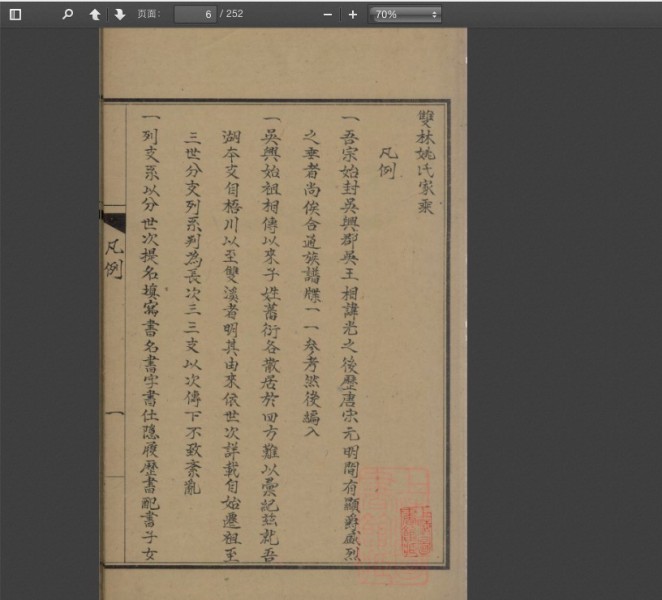 页面: 6 / 252 70%
雙林姚氏家乘
凡例
一吾宗始封吳興郡吳王相諱光之後歷唐宋元明間有顯爵盛烈
之幸者尚俟合通族譜牒一一參考然後編入
一吳興始祖相傳以來子姓蕃衍各散居於四方難以彙記茲就吾
湖本支自梧川以至雙溪者明其由來依世次詳載自始遷祖至
三世分支列系判為長次三三支以次傳下不致紊亂
一列支系以分世次提名填寫書名書字書仕隱履歷書配書子女
凡例
一